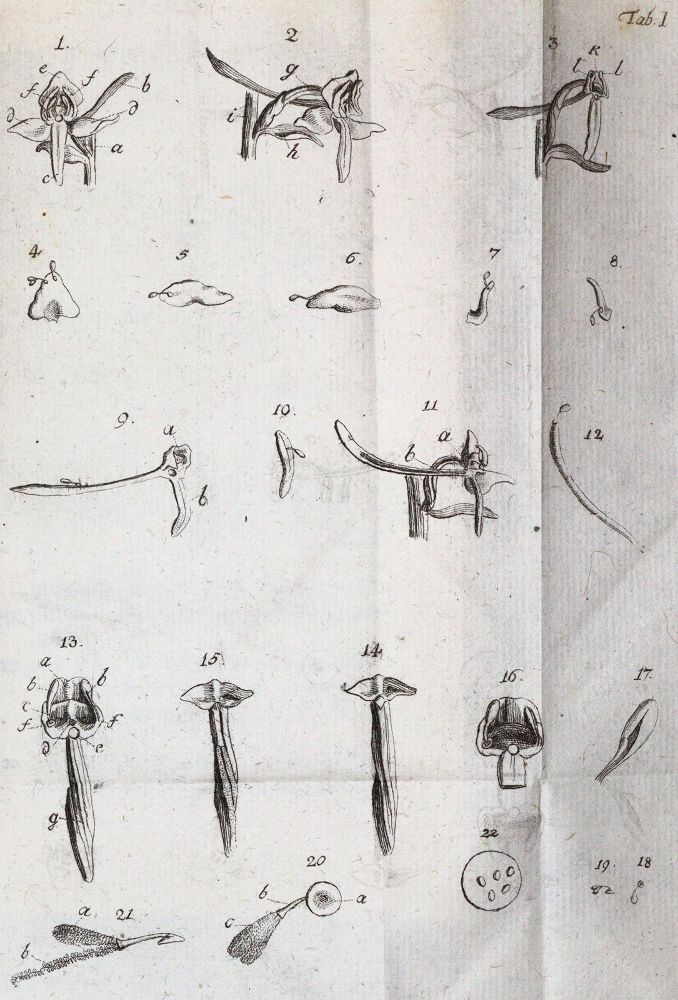 Tab. 1
1. 2 3
e f f b d d a c
g i h
K l l
4. 5 6. 7 8.
9. 10. 11 12
a b
a b
13. 15. 14. 16. 17.
a b b c f f d e e g
22 19. 18
20
b a c
21
a b